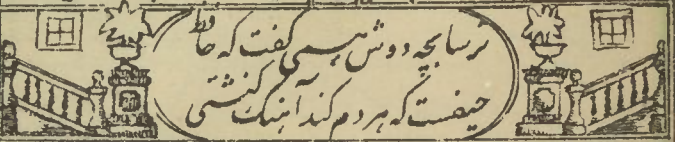 ترسا بچه دوش همی گفت که حافظ
حیفست که هر دم کند آهنگ کنشتی